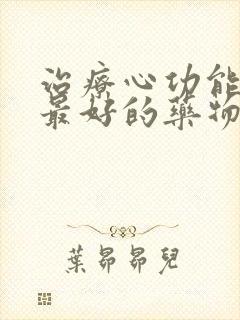 治療心功能
最好的藥物
葉昴昴兒